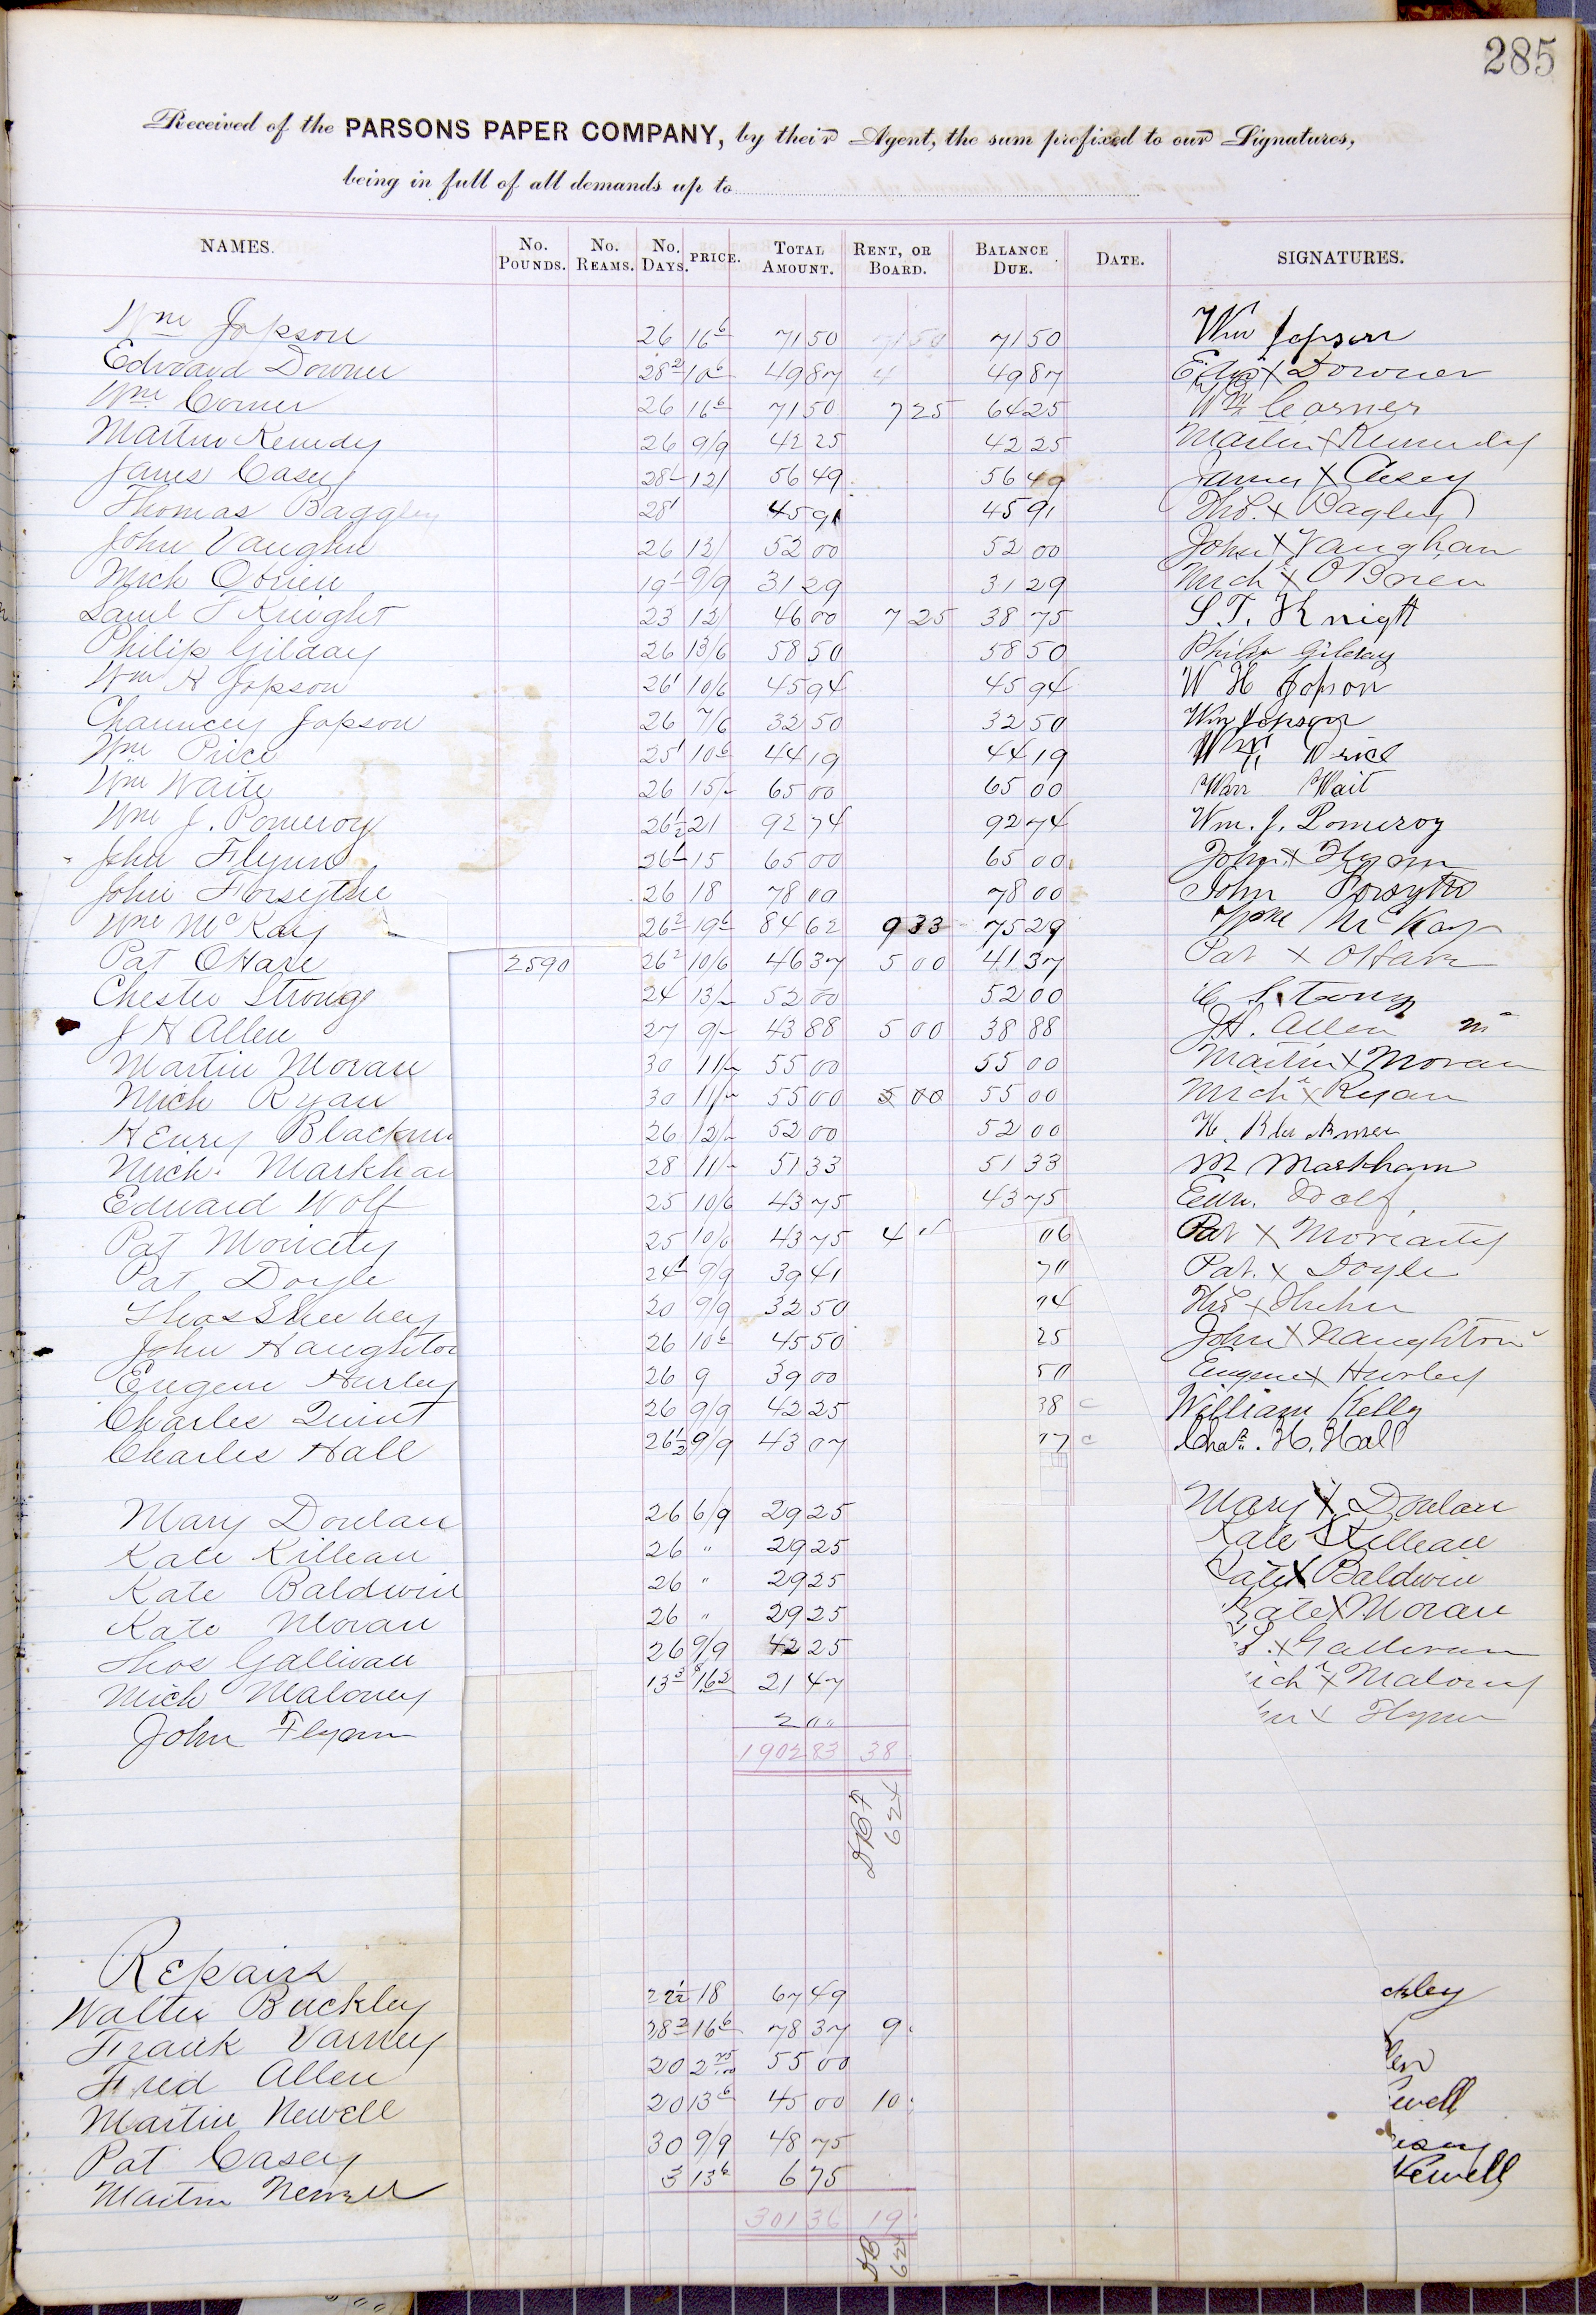 285
Received of the PARSONS PAPER COMPANY, by their Agent, the sum prefixed to our Signatures,
being in full of all demands up to
NAMES. No. Pounds. No. Reams. No. Days. PRICE. Total Amount. Rent, or Board. Balance Due. Date. SIGNATURES.
Wm Jopson 26 16 6 71 50 71 50 71 50 Wm Jopson
Edward Downer 28 2 10 6 49 87 4 49 87 X Downer
Wm Corner 26 16 6 71 50 7 25 64 25 Wm Corner
Martin Kenedy 26 9/9 42 25 42 25 Martin X Kennedy
James Casey 28 12/ 56 49 56 49 James X Casey
Thomas Baggley 28 1 45 91 45 91 Tho. X Bagley
John Vaughn 26 12/ 52 00 52 00 John X Vaughan
Mich Obrien 19 9/9 31 29 31 29 Mich X OBrien
Saml T Knight 23 12/ 46 00 7 25 38 75 S. T. Knight
Philip Gilday 26 13/6 58 50 58 50 Philip Gilday
Wm H Jopson 26 1 10/6 45 94 45 94 W H Jopson
Chauncey Jopson 26 7/6 32 50 32 50 Wm Jopson
Wm Price 25 1 10 6 44 19 44 19 Wm Price
Wm Waite 26 15/- 65 00 65 00 Wait
Wm J. Pomeroy 26 1/2 21 92 74 92 74 Wm. J. Pomeroy
John Flynn 26 15 65 00 65 00 John X Flynn
John Forsythe 26 18 78 00 78 00 John Forsyth
Wm McKay 26 2 19 6 84 62 9 33 75 29 Wm McKay
Pat OHare 2590 26 2 10/6 46 37 5 00 41 37 Pat X OHare
Chester Strong 24 13/- 52 00 52 00 C Strong
J H Allen 27 9/- 43 88 5 00 38 88 J H. Allen
Martin Moran 30 11/- 55 00 55 00 Martin X Moran
Mich Ryan 30 11/- 55 00 5 00 55 00 Mich X Ryan
Henry Blackm 26 12/- 52 00 52 00 H.
Mich. Markha 28 11/- 51 33 51 33 M Markham
Edward Wolf 25 10/6 43 75 43 75 Edw. Wolf
Pat Moriety 25 10/6 43 75 4 " 06 Pat X Moriarty
Pat Doyle 24 1 9/9 39 41 70 Pat. X Doyle
Thos Sheehey 20 9/9 32 50 Thos X
John Naughton 26 10 6 45 50 25 John X Naughton
Eugene Hurley 26 9 39 00 50 Eugene X Hurley
Charles Quint 26 9/9 42 25 38 c William Kelly
Charles Hall 26 1/2 9/9 43 07 17 c Chas. H. Hall
Mary Donlan 26 6/9 29 25 Mary X Donlan
Kate Killean 26 " 29 25 Kate X Killean
Kate Baldwin 26 " 29 25 Kate X Baldwin
Kate Moran 26 " 29 25 Kate X Moran
Thos Gallivan 26 9/9 42 25 X Gallivan
Mich Maloney 13 3 16 2 21 47 ich X Maloney
John Flynn 2 00 X Flynn
1902 83 38
624
Repairs
Walter Buckley 22 1/2 18 67 49 ckley
Frank Varney 28 2 16 6 78 37 9
Fred Allen 20 2 75/100 55 00 len
Martin Newell 20 13 6 45 00 10 ewell
Pat Casey 30 9/9 48 75 asey
Martin Newell 3 13 6 6 75 Newell
301 36 19
624